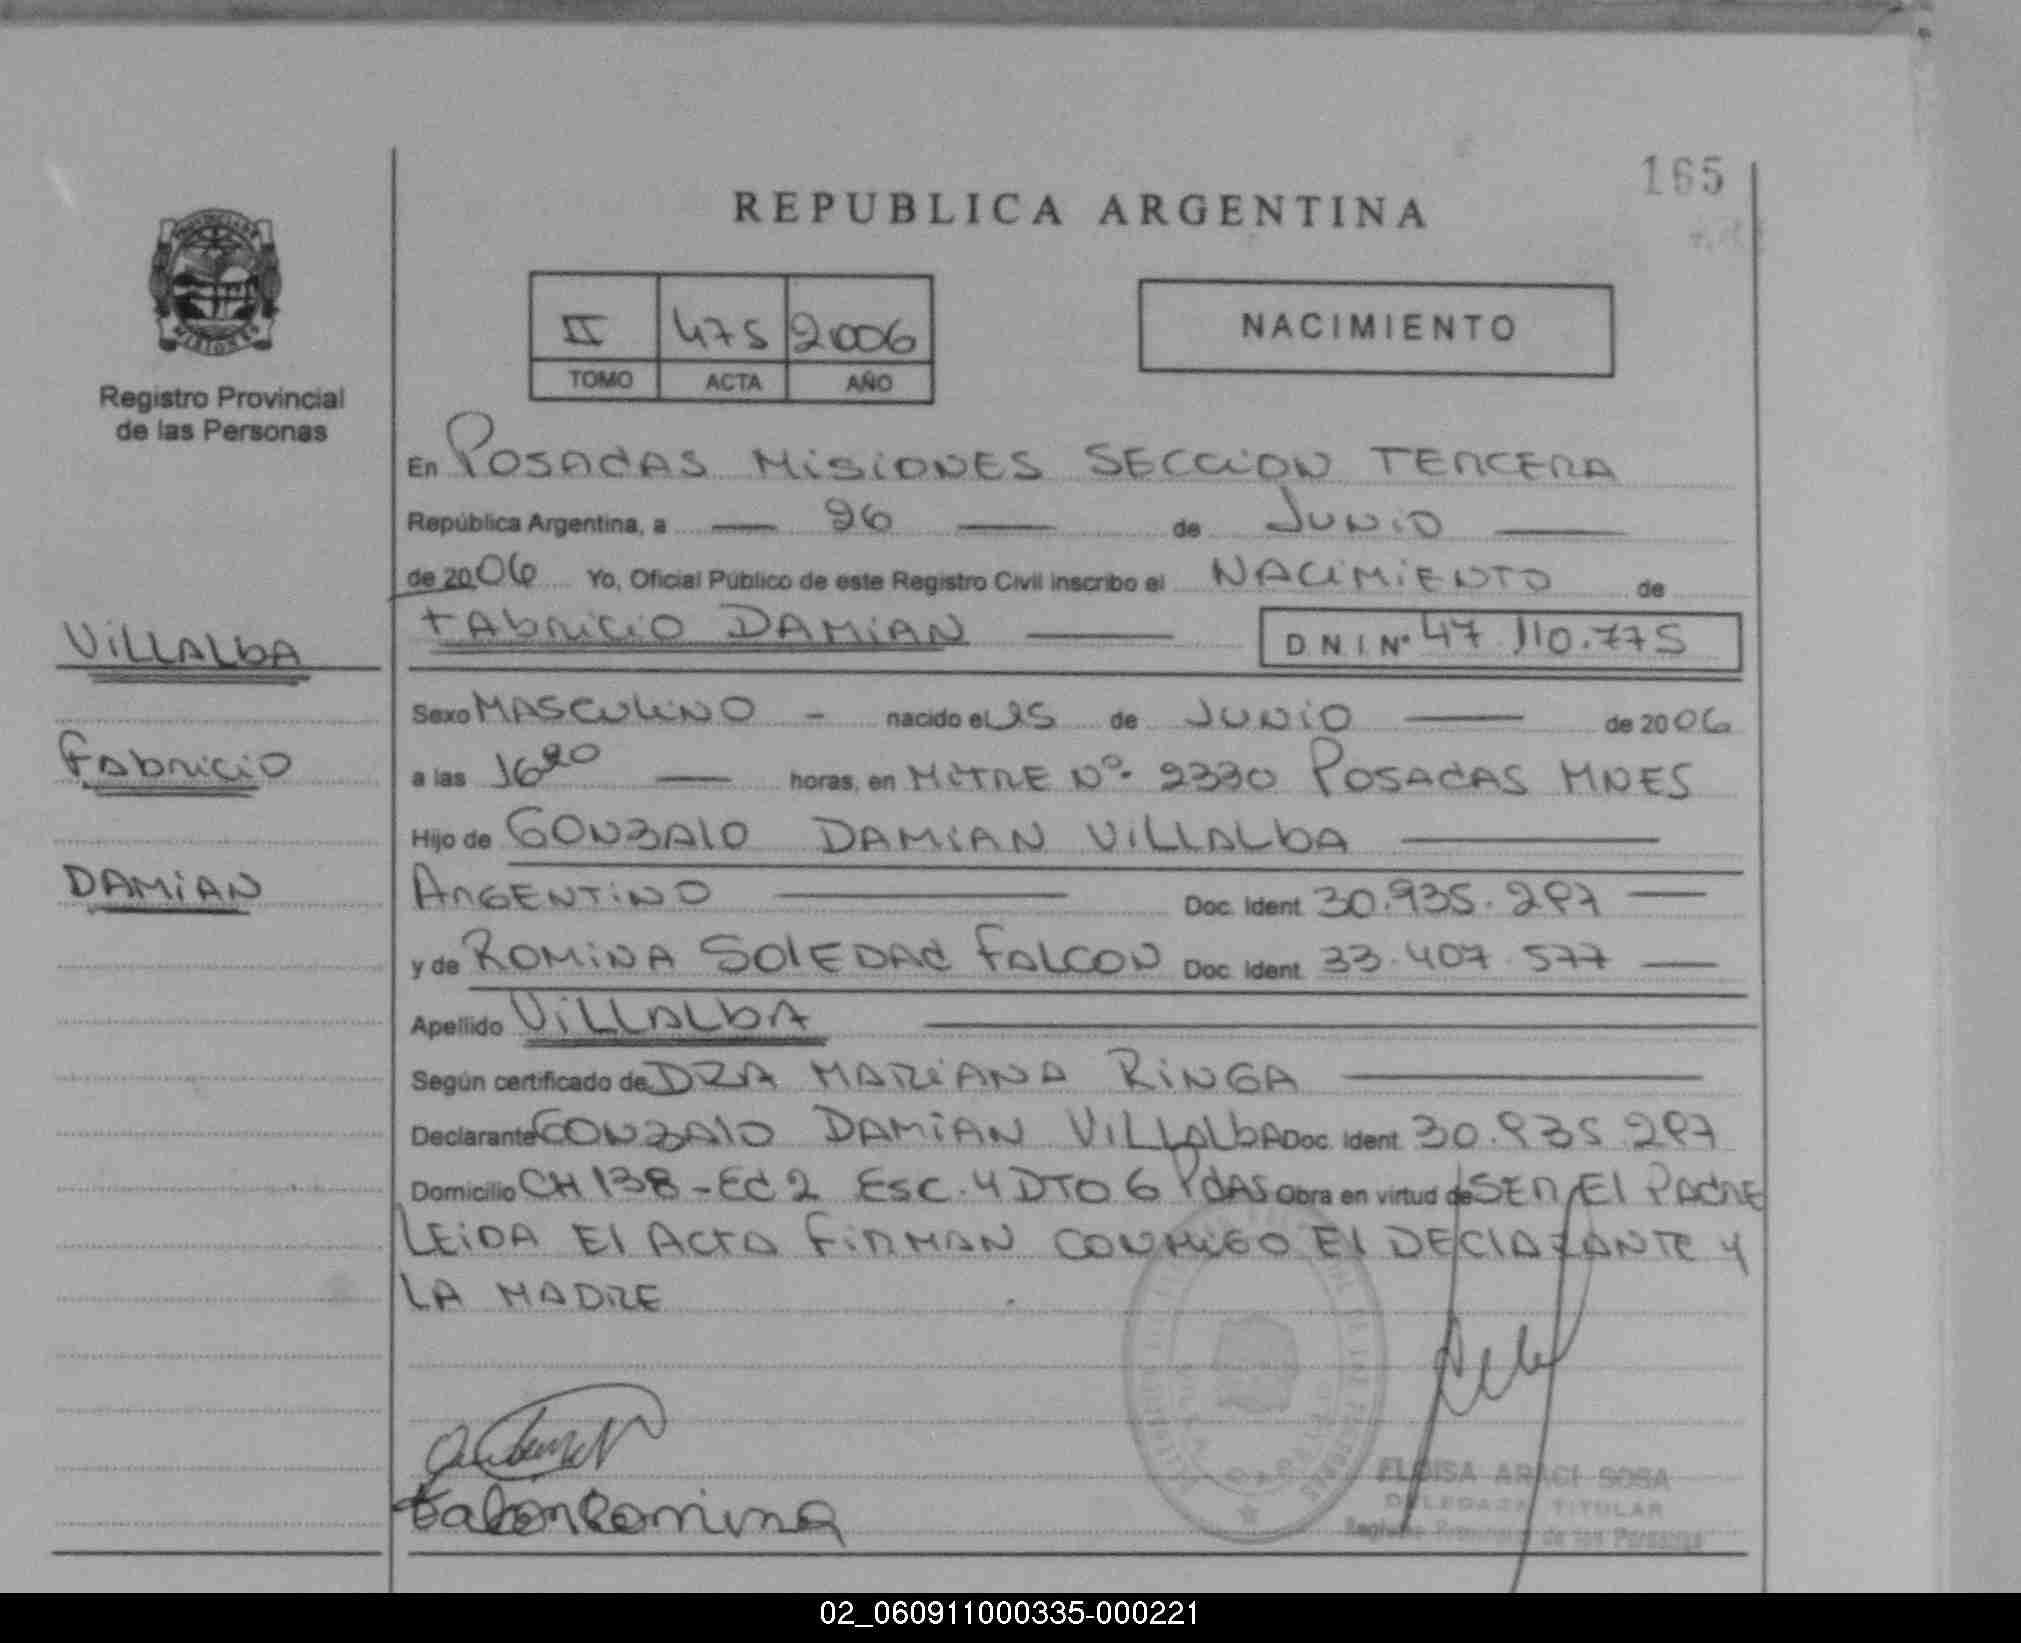 165
REPUBLICA ARGENTINA
MISIONES
Registro Provincial
de las Personas
II 475 2006
TOMO ACTA AÑO
NACIMIENTO
En POSADAS MISIONES SECCION TERCERA
República Argentina, a — 26 — de JUNIO —
de 2006 Yo, Oficial Público de este Registro Civil inscribo el NACIMIENTO de
FABRICIO DAMIAN — D N I Nº 47.110.775
VILLALBA
FABRICIO
DAMIAN
Sexo MASCULINO - nacido el 15 de JUNIO — de 2006
a las 16 20 — horas, en MITRE Nº 2330 POSADAS MNES
Hijo de GONZALO DAMIAN VILLALBA —
ARGENTINO — Doc. Ident. 30.935.297 —
y de ROMINA SOLEDAD FALCON Doc. Ident. 33.407.577 —
Apellido VILLALBA —
Según certificado de DRA MARIANA RINGA —
Declarante GONZALO DAMIAN VILLALBA Doc. Ident. 30.935.297
Domicilio CH 138 - Ed 2 Esc. 4 DTO 6 PdAS Obra en virtud de SER El PADRE
LEIDA El ACTA FIRMAN CONMIGO El DECLARANTE Y
LA MADRE
Falcon Romina
ELOISA ARACI SOSA
DELEGADA TITULAR
Registro Provincial de las Personas
02_060911000335-000221